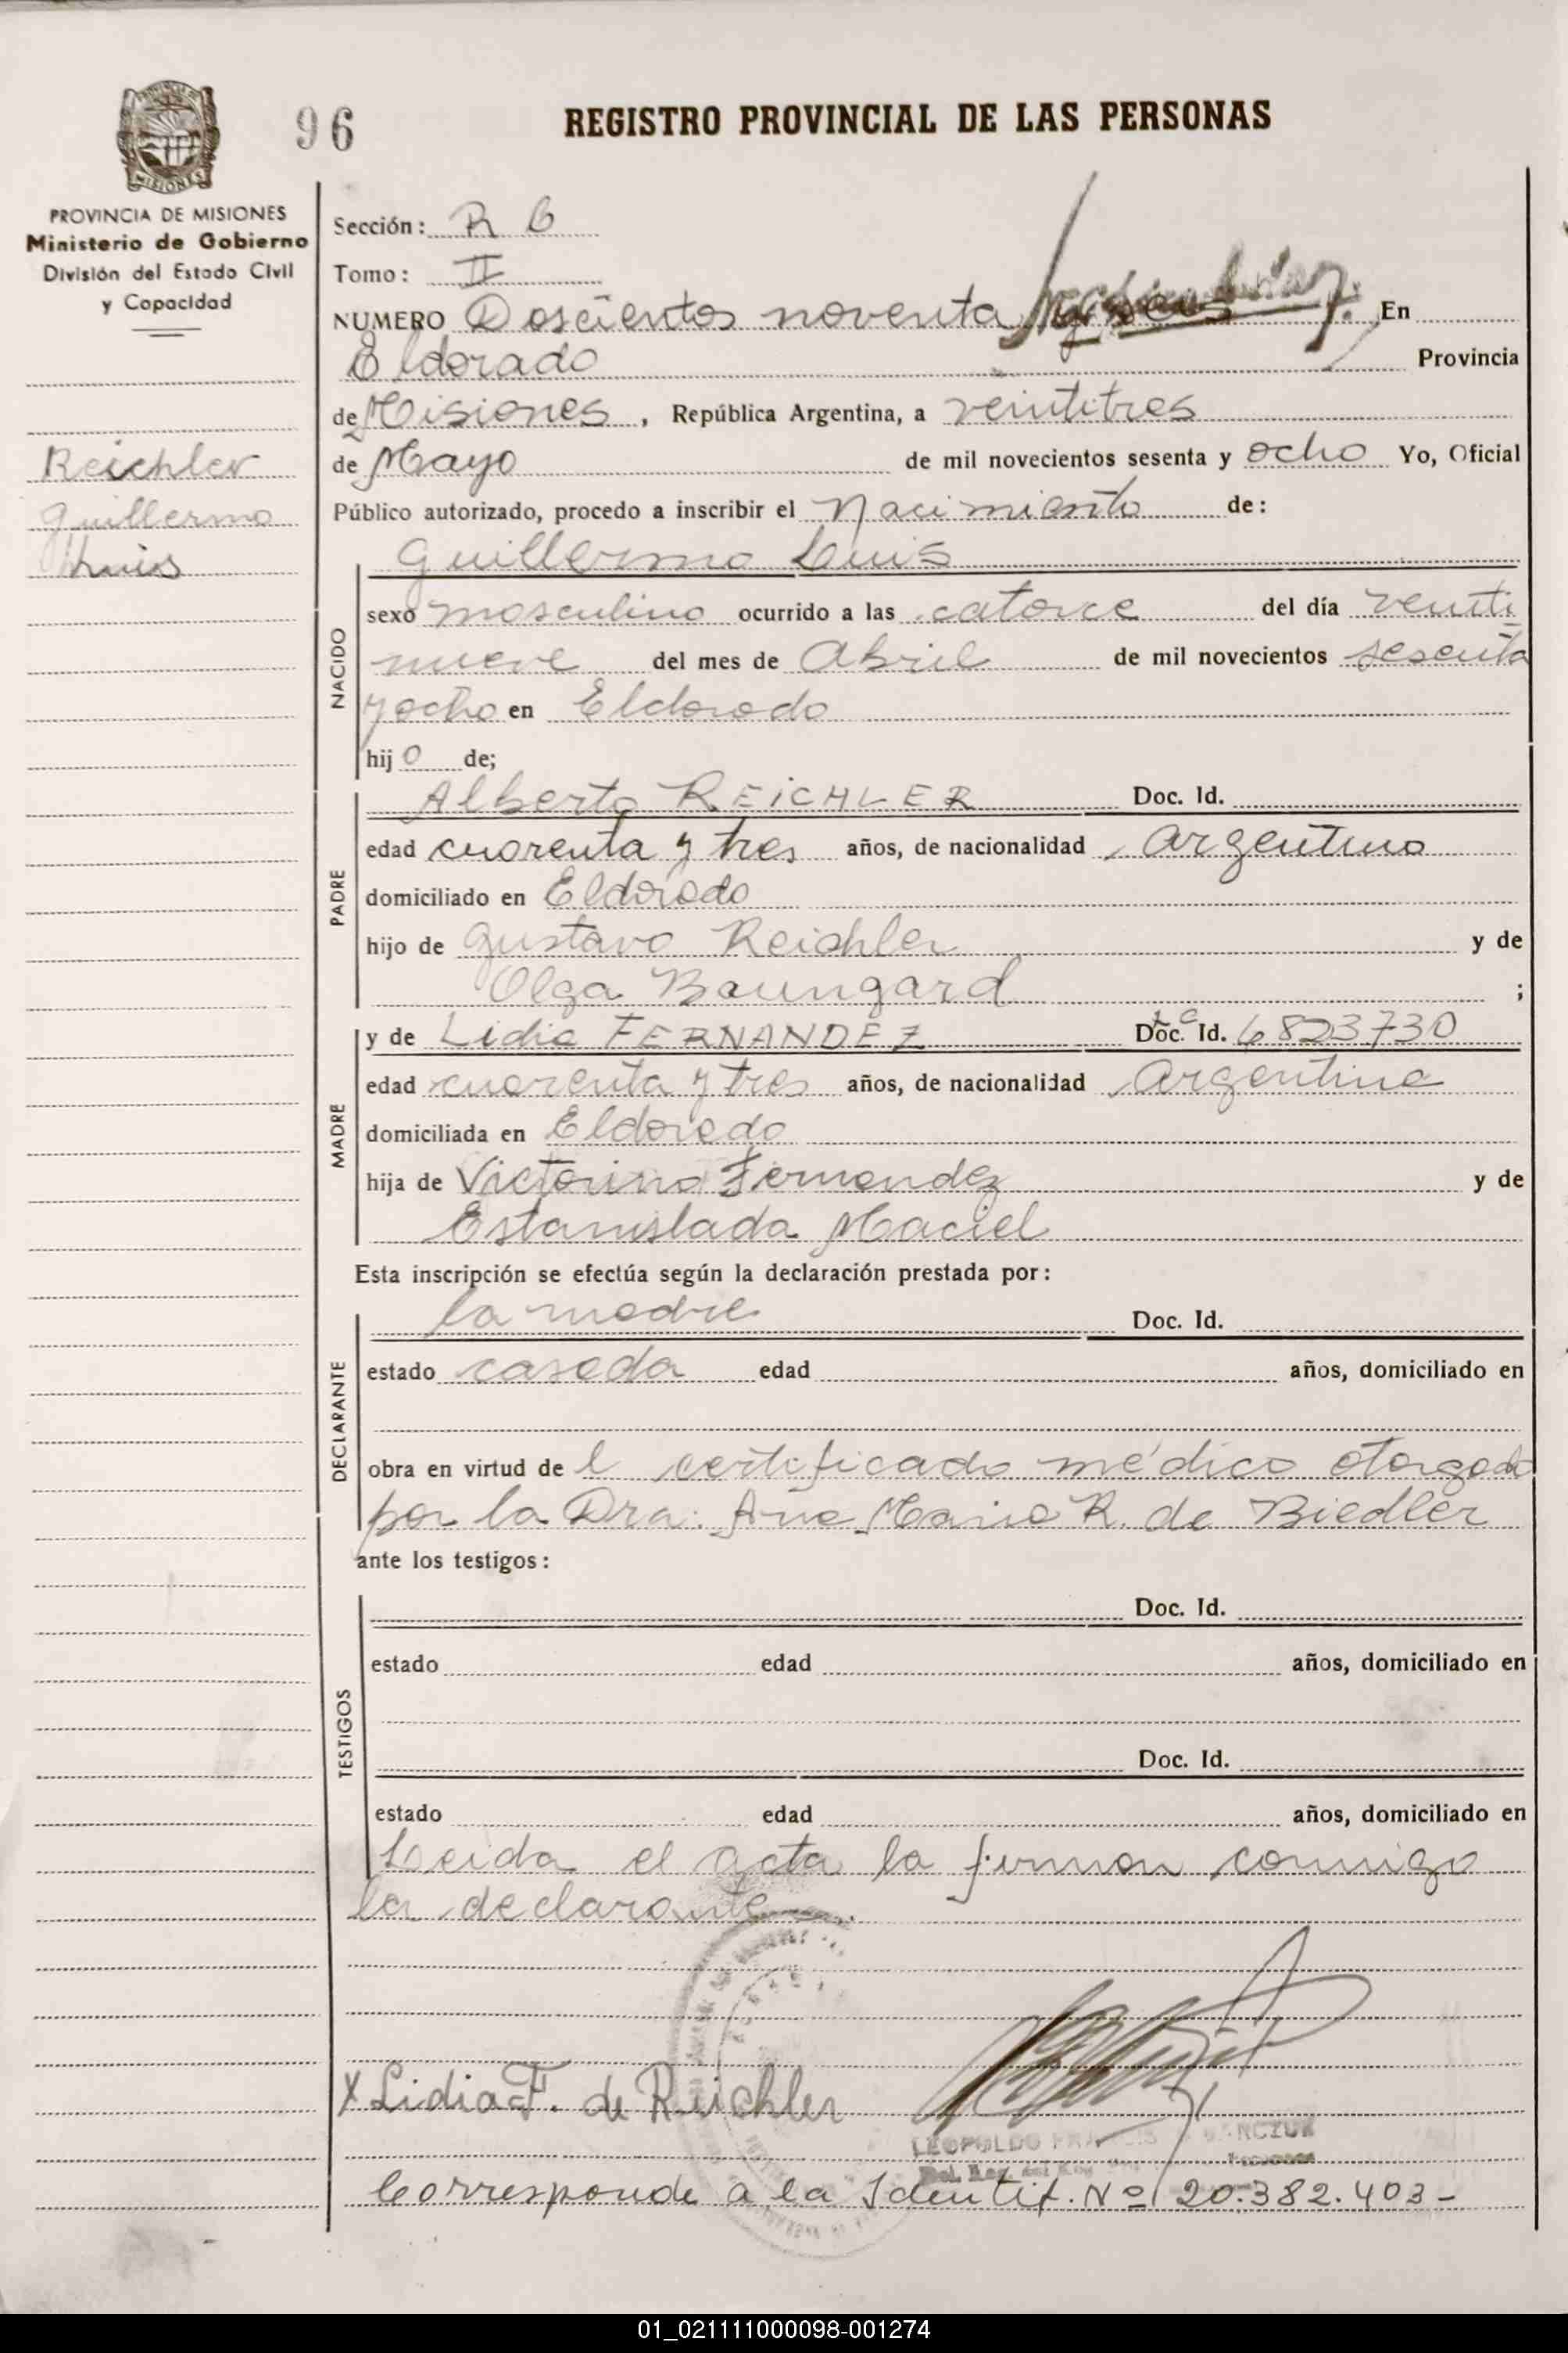 96
REGISTRO PROVINCIAL DE LAS PERSONAS
MISIONES
PROVINCIA DE MISIONES
Ministerio de Gobierno
División del Estado Civil
y Capacidad
Reichler
Guillermo
Luis
Sección: R 6
Tomo: II
NUMERO Doscientos noventa y seis En
Eldorado Provincia
de Misiones, República Argentina, a veintitres
de Mayo de mil novecientos sesenta y ocho Yo, Oficial
Público autorizado, procedo a inscribir el Nacimiento de:
Guillermo Luis
NACIDO
sexo masculino ocurrido a las catorce del día veinti
nueve del mes de Abril de mil novecientos sesenta
y ocho en Eldorado
hijo de;
PADRE
Alberto REICHLER Doc. Id.
edad cuarenta y tres años, de nacionalidad Argentino
domiciliado en Eldorado
hijo de Gustavo Reichler y de
Olga Baungard ;
MADRE
y de Lidia FERNANDEZ Doc. Id. 6823730
edad cuarenta y tres años, de nacionalidad Argentina
domiciliada en Eldorado
hija de Victorino Fernandez y de
Estanislada Maciel
Esta inscripción se efectúa según la declaración prestada por:
DECLARANTE
la madre Doc. Id.
estado casada edad años, domiciliado en
obra en virtud de l certificado médico otorgado
por la Dra. Ana Maria R. de Biedler
ante los testigos:
TESTIGOS
Doc. Id.
estado edad años, domiciliado en
Doc. Id.
estado edad años, domiciliado en
Leida el acta la firman conmigo
la declarante
X Lidia F. de Reichler
LEOPOLDO
Corresponde a la Identif. Nº 20.382.403-
01_021111000098-001274